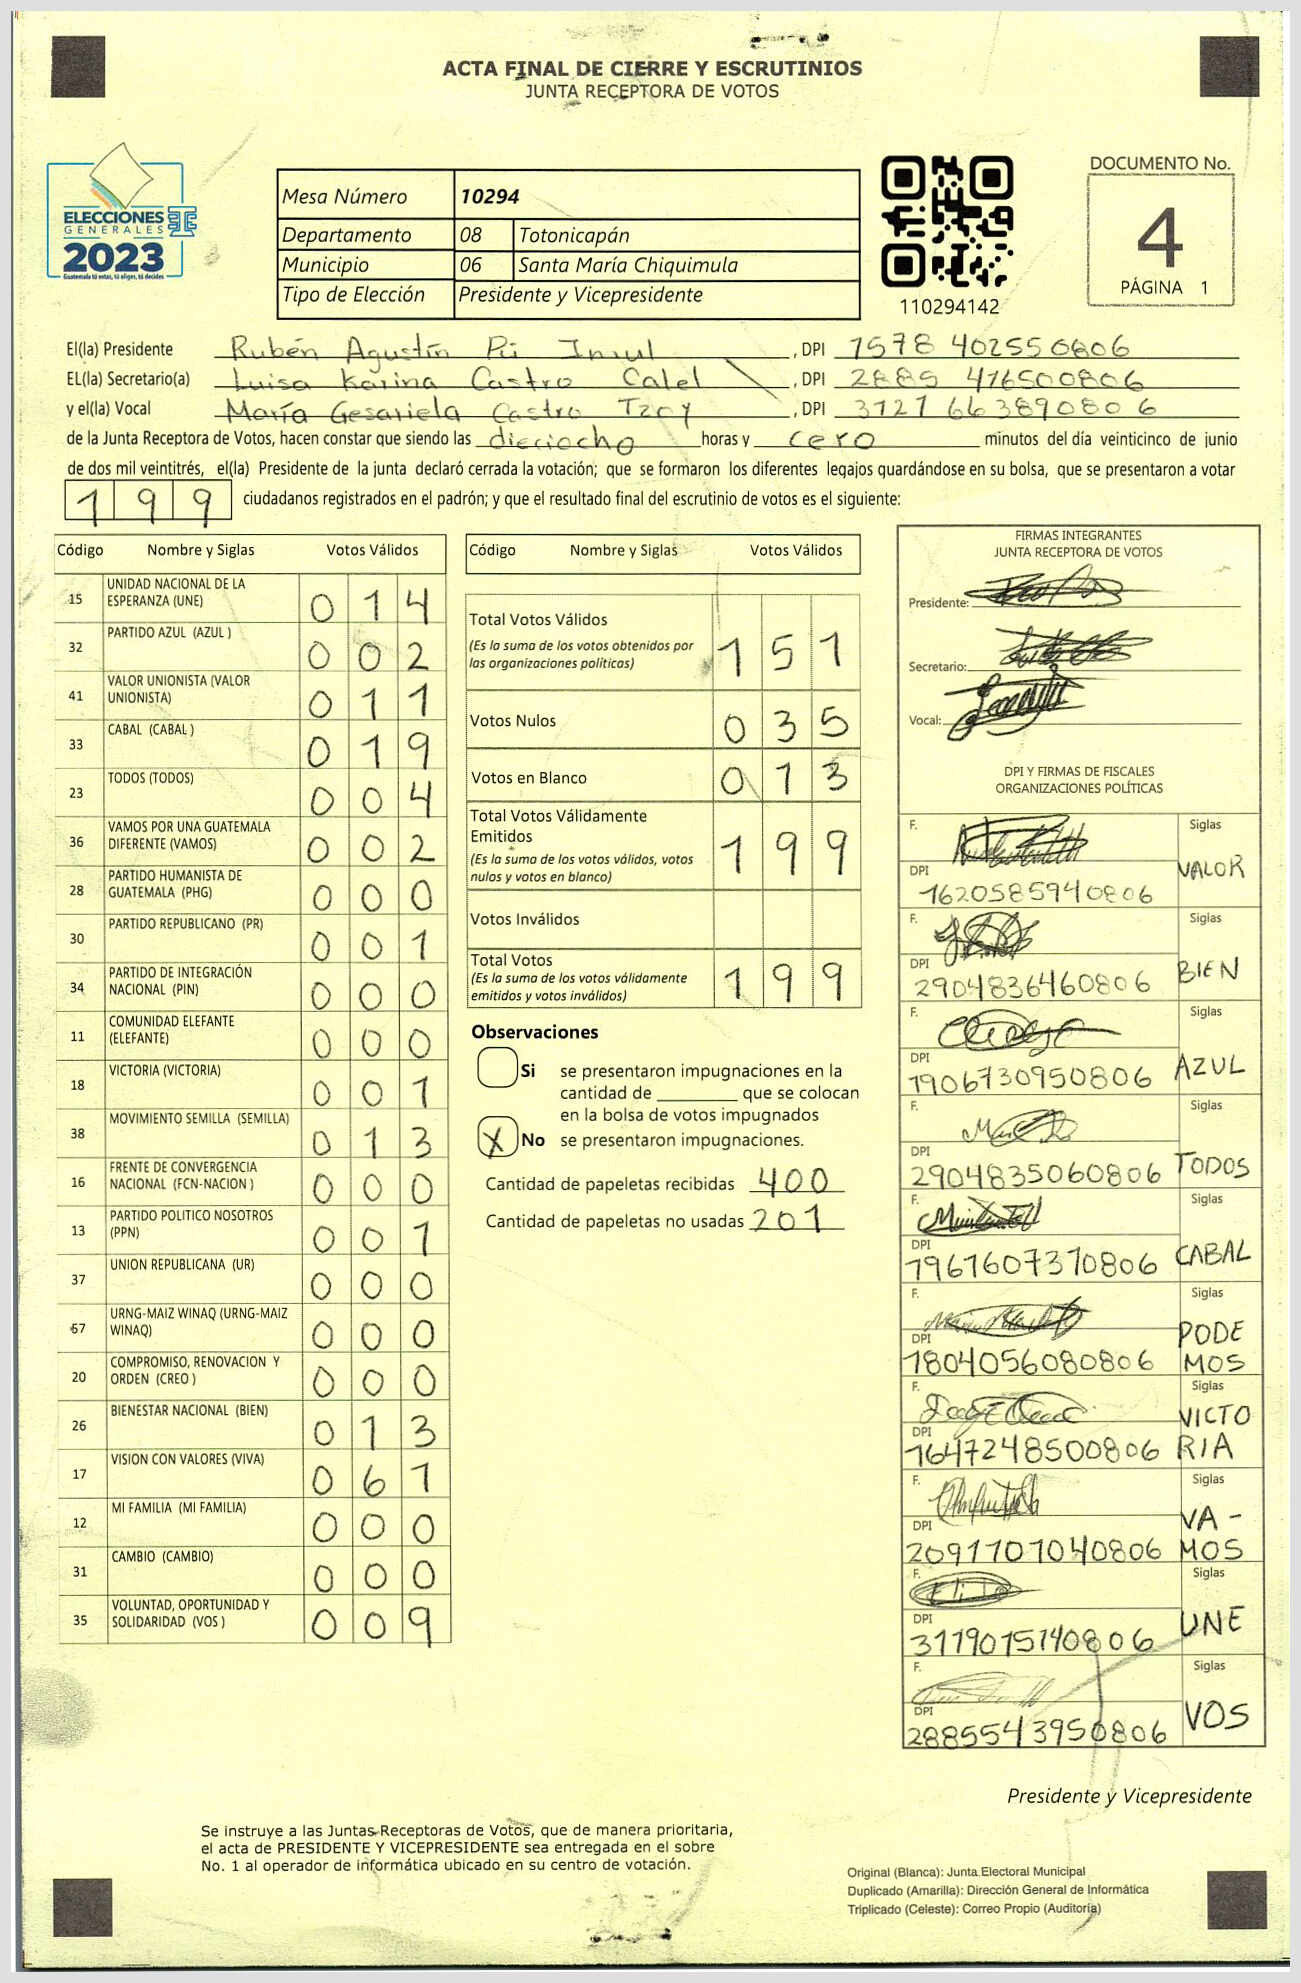 ACTA FINAL DE CIERRE Y ESCRUTINIOS
JUNTA RECEPTORA DE VOTOS
ELECCIONES
GENERALES
2023
Guatemala tú votas, tú eliges, tú decides
Mesa Número 10294
Departamento 08 Totonicapán
Municipio 06 Santa María Chiquimula
Tipo de Elección Presidente y Vicepresidente
110294142
DOCUMENTO No.
4
PÁGINA 1
El(la) Presidente Rubén Agustín Pú , DPI 1578 40255 0806
EL(la) Secretario(a) Luisa Karina Castro Calel , DPI 2885 41650 0806
y el(la) Vocal María Gesariela Castro Tzoy , DPI 3121 66389 0806
de la Junta Receptora de Votos, hacen constar que siendo las dieciocho horas y cero minutos del día veinticinco de junio
de dos mil veintitrés, el(la) Presidente de la junta declaró cerrada la votación; que se formaron los diferentes legajos guardándose en su bolsa, que se presentaron a votar
199 ciudadanos registrados en el padrón; y que el resultado final del escrutinio de votos es el siguiente:
Código Nombre y Siglas Votos Válidos
15 UNIDAD NACIONAL DE LA ESPERANZA (UNE) 014
32 PARTIDO AZUL (AZUL ) 002
41 VALOR UNIONISTA (VALOR UNIONISTA) 011
33 CABAL (CABAL ) 019
23 TODOS (TODOS) 004
36 VAMOS POR UNA GUATEMALA DIFERENTE (VAMOS) 002
28 PARTIDO HUMANISTA DE GUATEMALA (PHG) 000
30 PARTIDO REPUBLICANO (PR) 001
34 PARTIDO DE INTEGRACIÓN NACIONAL (PIN) 000
11 COMUNIDAD ELEFANTE (ELEFANTE) 000
18 VICTORIA (VICTORIA) 001
38 MOVIMIENTO SEMILLA (SEMILLA) 013
16 FRENTE DE CONVERGENCIA NACIONAL (FCN-NACION ) 000
13 PARTIDO POLITICO NOSOTROS (PPN) 001
37 UNION REPUBLICANA (UR) 000
57 URNG-MAIZ WINAQ (URNG-MAIZ WINAQ) 000
20 COMPROMISO, RENOVACION Y ORDEN (CREO ) 000
26 BIENESTAR NACIONAL (BIEN) 013
17 VISION CON VALORES (VIVA) 061
12 MI FAMILIA (MI FAMILIA) 000
31 CAMBIO (CAMBIO) 000
35 VOLUNTAD, OPORTUNIDAD Y SOLIDARIDAD (VOS ) 009
Código Nombre y Siglas Votos Válidos
Total Votos Válidos 151
(Es la suma de los votos obtenidos por
las organizaciones políticas)
Votos Nulos 035
Votos en Blanco 013
Total Votos Válidamente
Emitidos 199
(Es la suma de los votos válidos, votos
nulos y votos en blanco)
Votos Inválidos
Total Votos 199
(Es la suma de los votos válidamente
emitidos y votos inválidos)
Observaciones
Si se presentaron impugnaciones en la
cantidad de ________ que se colocan
en la bolsa de votos impugnados
X No se presentaron impugnaciones.
Cantidad de papeletas recibidas 400
Cantidad de papeletas no usadas 201
FIRMAS INTEGRANTES
JUNTA RECEPTORA DE VOTOS
Presidente:
Secretario:
Vocal:
DPI Y FIRMAS DE FISCALES
ORGANIZACIONES POLÍTICAS
F. Siglas
DPI VALOR
1620585940806
F. Siglas
DPI BIEN
2904836460806
F. Siglas
DPI AZUL
1906730950806
F. Siglas
DPI TODOS
2904835060806
F. Siglas
DPI CABAL
1961607370806
F. Siglas
DPI PODE
1804056080806 MOS
F. Siglas
DPI VICTO
1647248500806 RIA
F. Siglas
DPI VA -
2091101040806 MOS
F. Siglas
DPI UNE
3119015140806
F. Siglas
DPI VOS
2885543950806
Presidente y Vicepresidente
Se instruye a las Juntas Receptoras de Votos, que de manera prioritaria,
el acta de PRESIDENTE Y VICEPRESIDENTE sea entregada en el sobre
No. 1 al operador de informática ubicado en su centro de votación.
Original (Blanca): Junta Electoral Municipal
Duplicado (Amarilla): Dirección General de Informática
Triplicado (Celeste): Correo Propio (Auditoría)